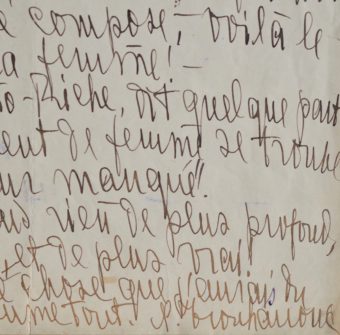 compose, – voilà le
a femme! –
o-Riche, dit quelque part
ent de femme se trouve
ur manqué".
ais rien de plus profond,
et de plus vrai
chose que
tout.